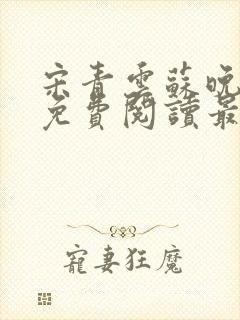 宋青雲蘇晚
免費閱讀最
寵妻狂魔